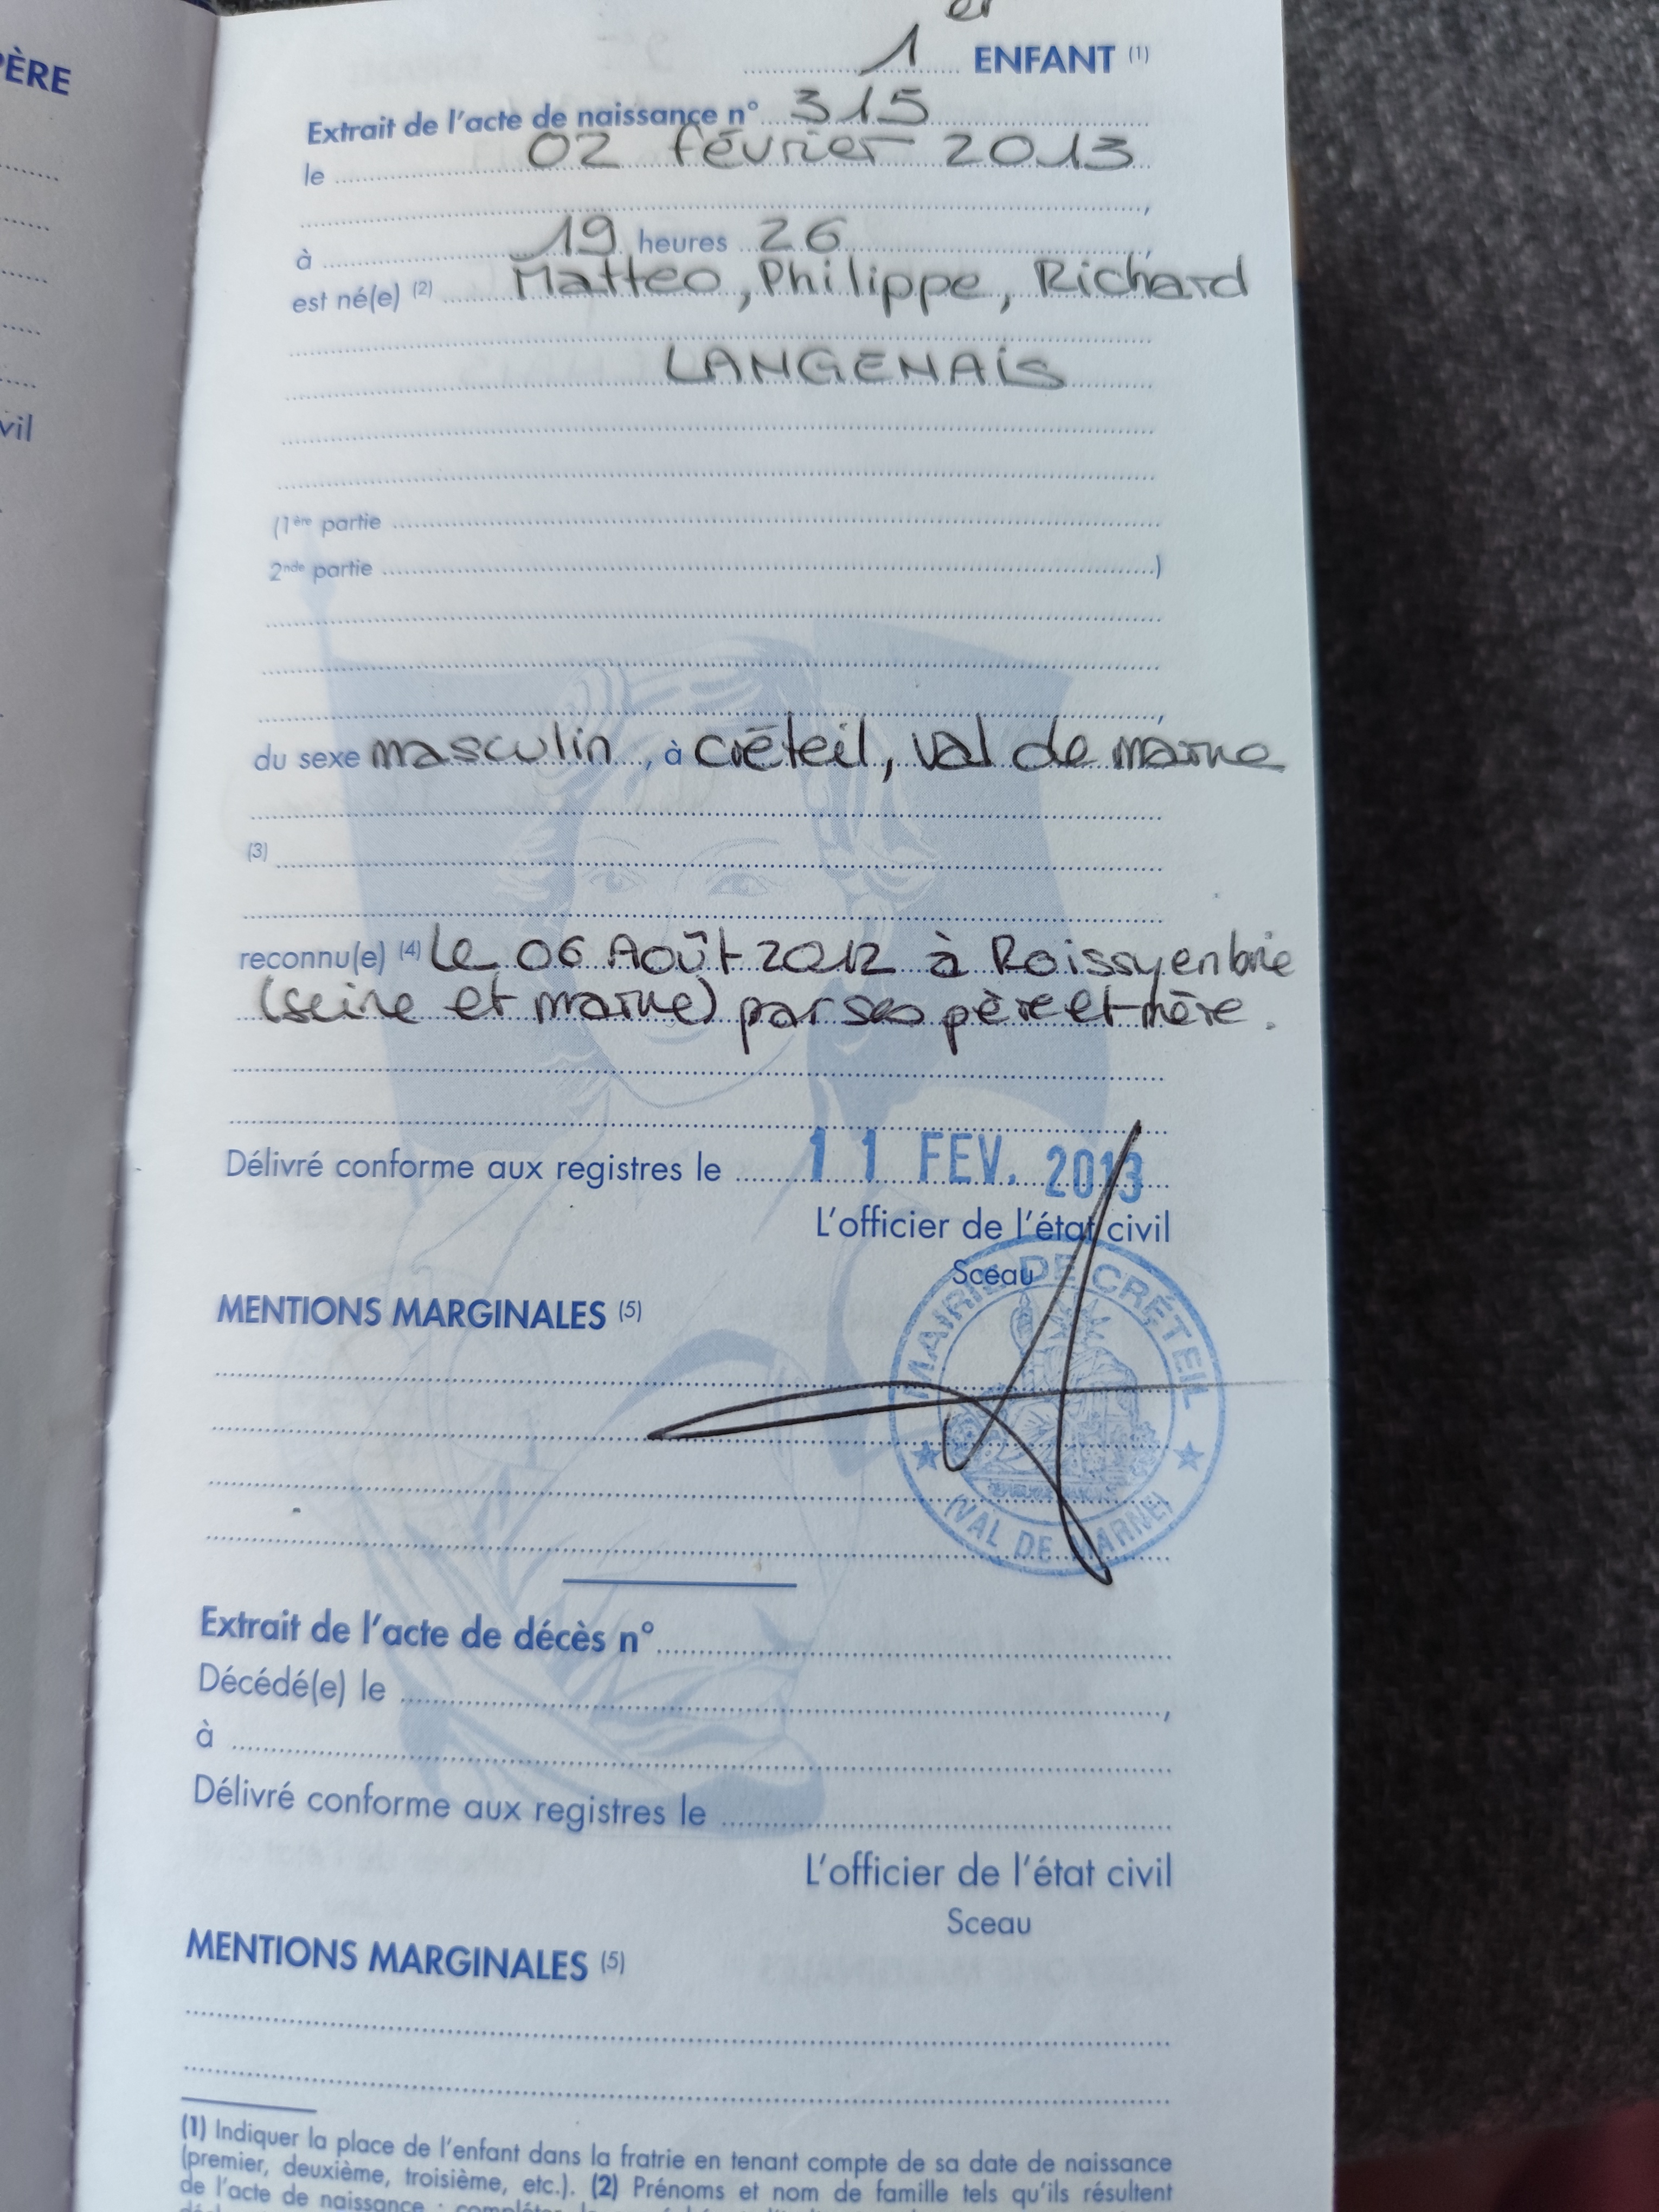 ÈRE
vil
1er ENFANT (1)
Extrait de l'acte de naissance n° 315
le 02 février 2013
,
à 19 heures 26,
est né(e) (2) Matteo, Philippe, Richard
LANGENAIS
(1ère partie
2nde partie )
,
du sexe masculin, à Créteil, Val de marne
(3)
reconnu(e) (4) le 06 Août 2012 à Roissy en brie
(seine et marne) par ses père et mère.
Délivré conforme aux registres le 11 FEV. 2013
L'officier de l'état civil
Sceau
MAIRIE DE CRÉTEIL
(VAL DE MARNE)
MENTIONS MARGINALES (5)
Extrait de l'acte de décès n°
Décédé(e) le ,
à
Délivré conforme aux registres le
L'officier de l'état civil
Sceau
MENTIONS MARGINALES (5)
(1) Indiquer la place de l'enfant dans la fratrie en tenant compte de sa date de naissance
(premier, deuxième, troisième, etc.). (2) Prénoms et nom de famille tels qu'ils résultent
de l'acte de naissance ;